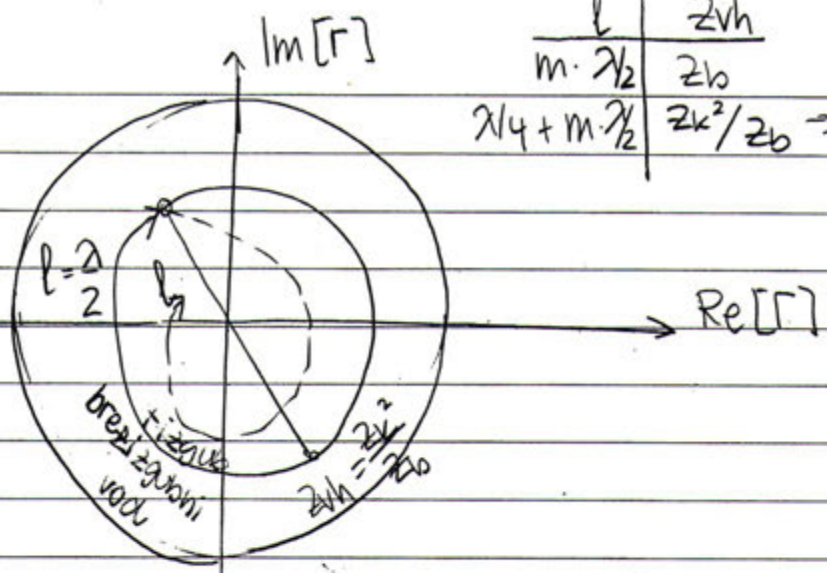 Im[Γ]
l | Zvh
m·λ/2 | Zb
λ/4 + m·λ/2 | Zk²/Zb →
l = λ/2
l
Re[Γ]
brezizgubni
vod
Zvh = Zk²/Zb